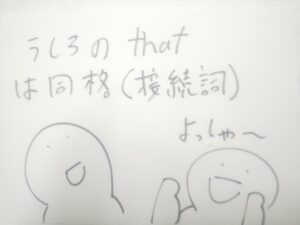 うしろの that
は同格(接続詞)
よっしゃ〜